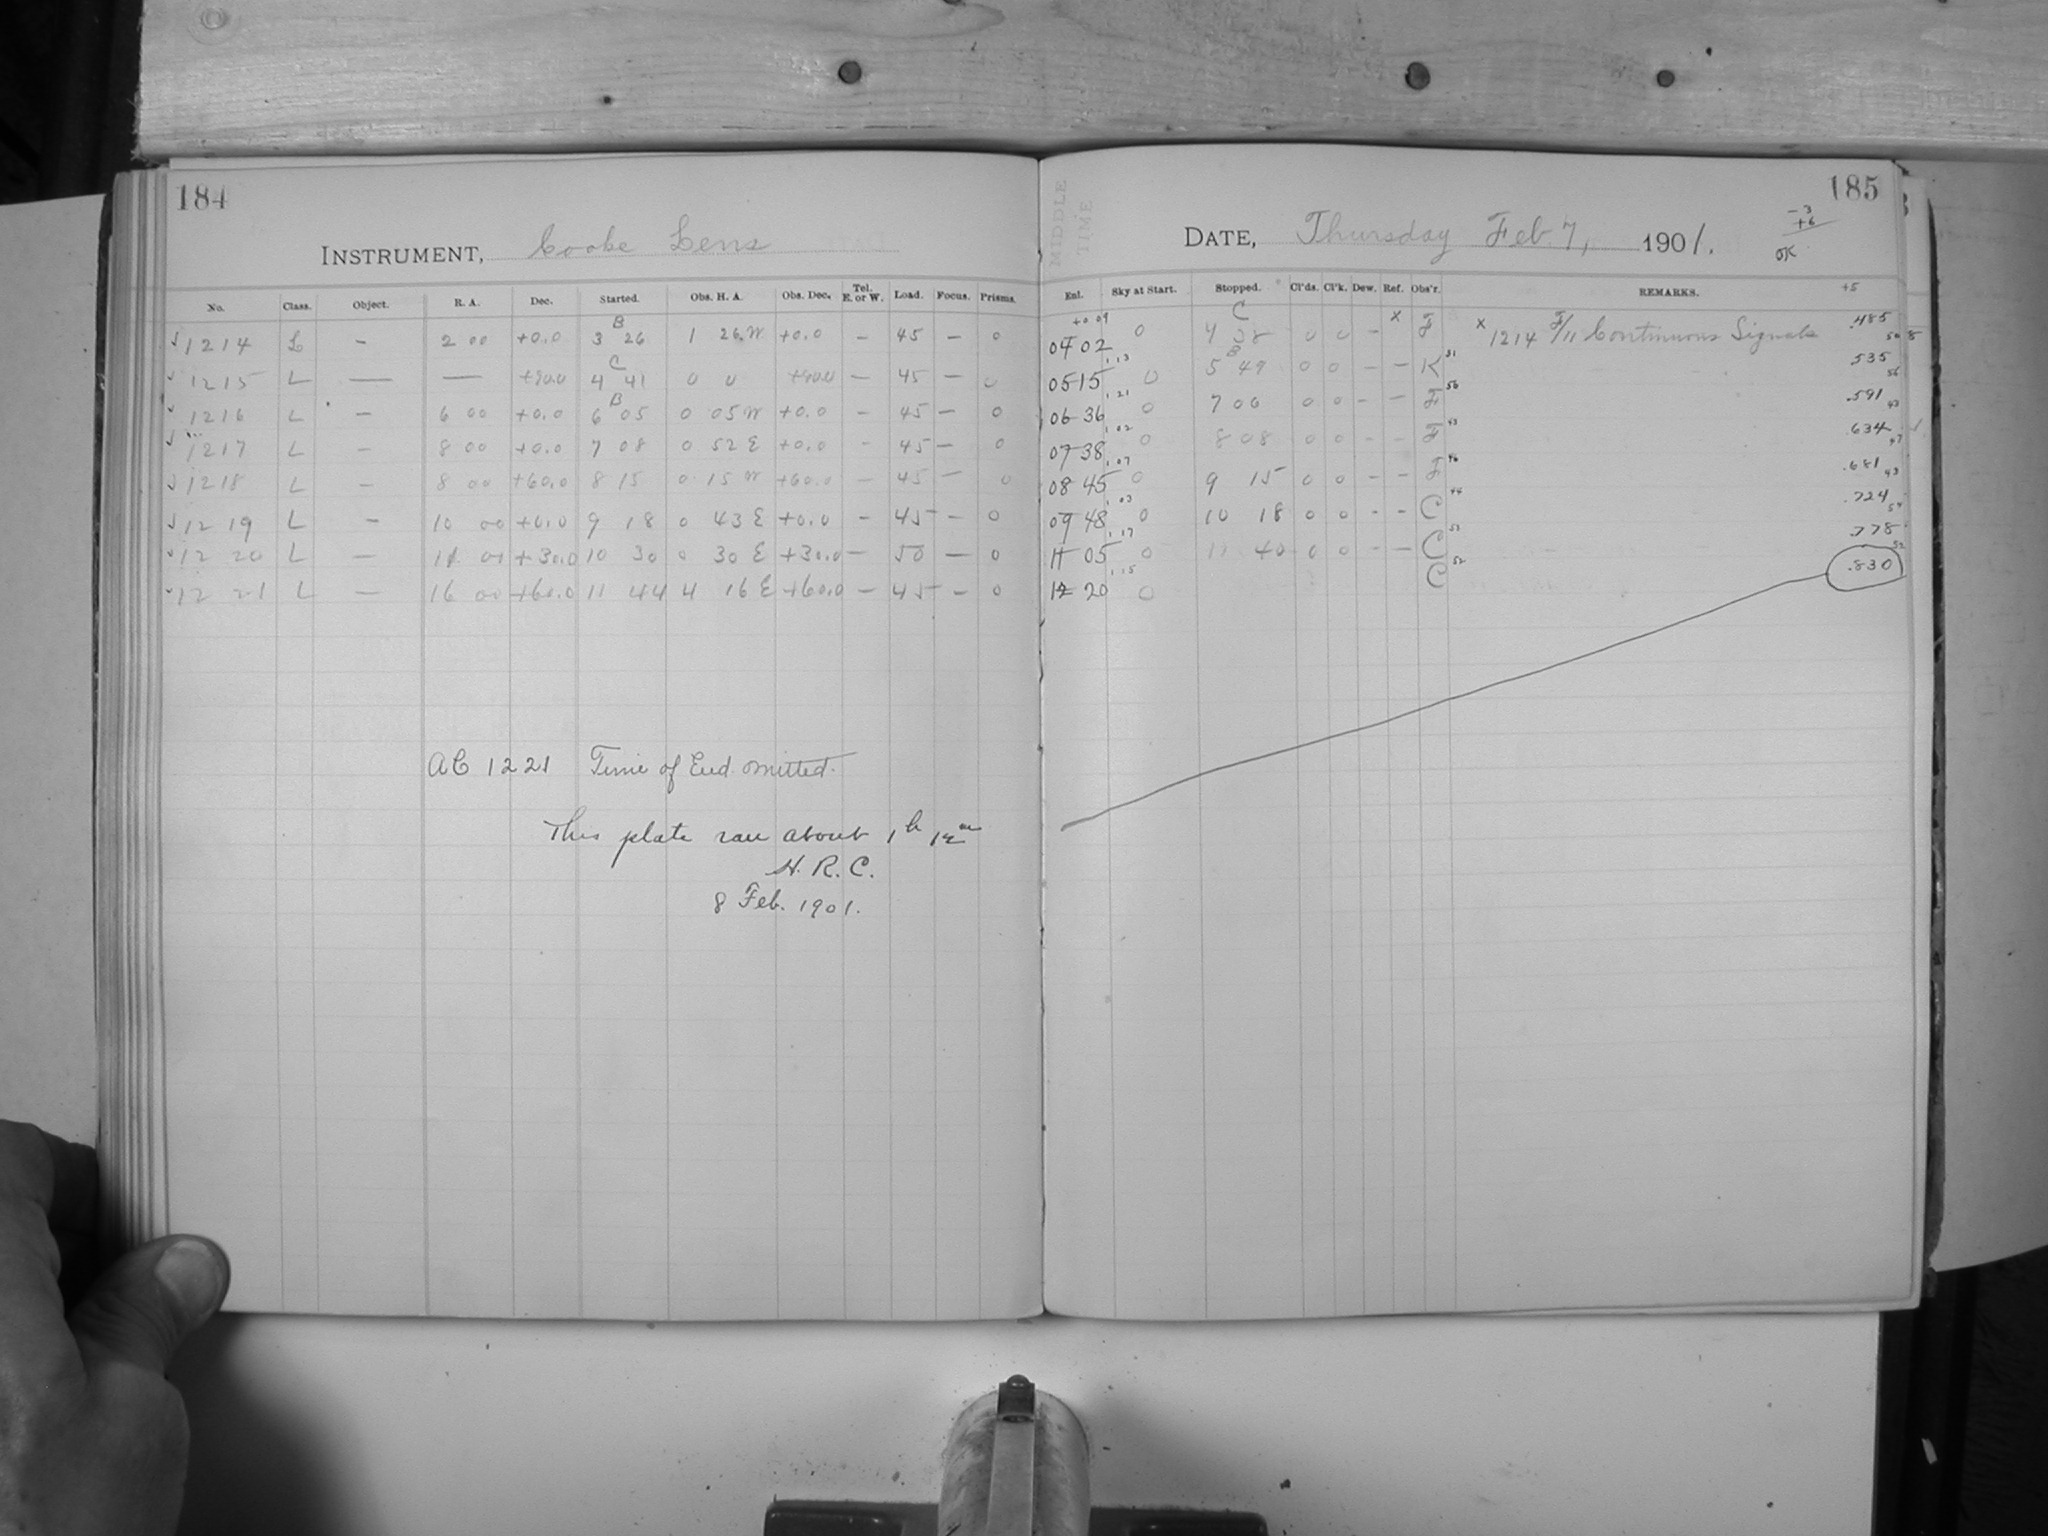 184
INSTRUMENT, Cooke Lens
No. Class. Object. R. A. Dec. Started. Obs. H. A. Obs. Dec. Tel. E. or W. Load. Focus. Prisms.
1214 L – 2 00 +0.0 B 3 26 1 26 W +0.0 – 45 – 0
1215 L — — +90.0 C 4 41 0 0 +90.0 – 45 – 0
1216 L – 6 00 +0.0 B 6 05 0 05 W +0.0 – 45 – 0
1217 L – 8 00 +0.0 7 08 0 52 E +0.0 – 45 – 0
1218 L – 8 00 +60.0 8 15 0 15 W +60.0 – 45 – 0
1219 L – 10 00 +0.0 9 18 0 43 E +0.0 – 45 – 0
1220 L – 11 00 +30.0 10 30 0 30 E +30.0 – 50 – 0
1221 L – 16 00 +60.0 11 44 4 16 E +60.0 – 45 – 0
AC 1221 Time of End omitted.
This plate ran about 1h 12m
H. R. C.
8 Feb. 1901.
185
MIDDLE TIME
DATE, Thursday Feb. 7, 1901.
-3
+6
OK
Enl. Sky at Start. Stopped. Cl'ds. Cl'k. Dew. Ref. Obs'r. REMARKS. +5
+0 09
04 02 0 C 4 38 0 0 – x F x 1214 F/11 Continuous Signals .485
50
1.13 05 15 0 B 5 49 0 0 – – K 51 .535
56
1.21 06 36 0 7 06 0 0 – – F 56 .591
43
1.02 07 38 0 8 08 0 0 – – F 43 .634
47
1.07 08 45 0 9 15 0 0 – – F 46 .681
43
1.03 09 48 0 10 18 0 0 – – C 44 .724
54
1.17 11 05 0 11 40 0 0 – – C 53 .778
52
1.15 12 20 0 C 52 .830